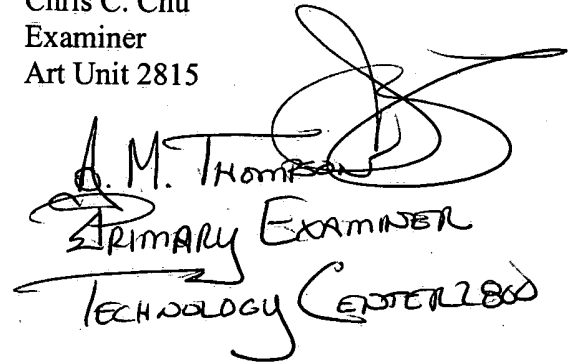 Chris C. Chu
Examiner
Art Unit 2815
A. M. Thompson
Primary Examiner
Technology Center 2800